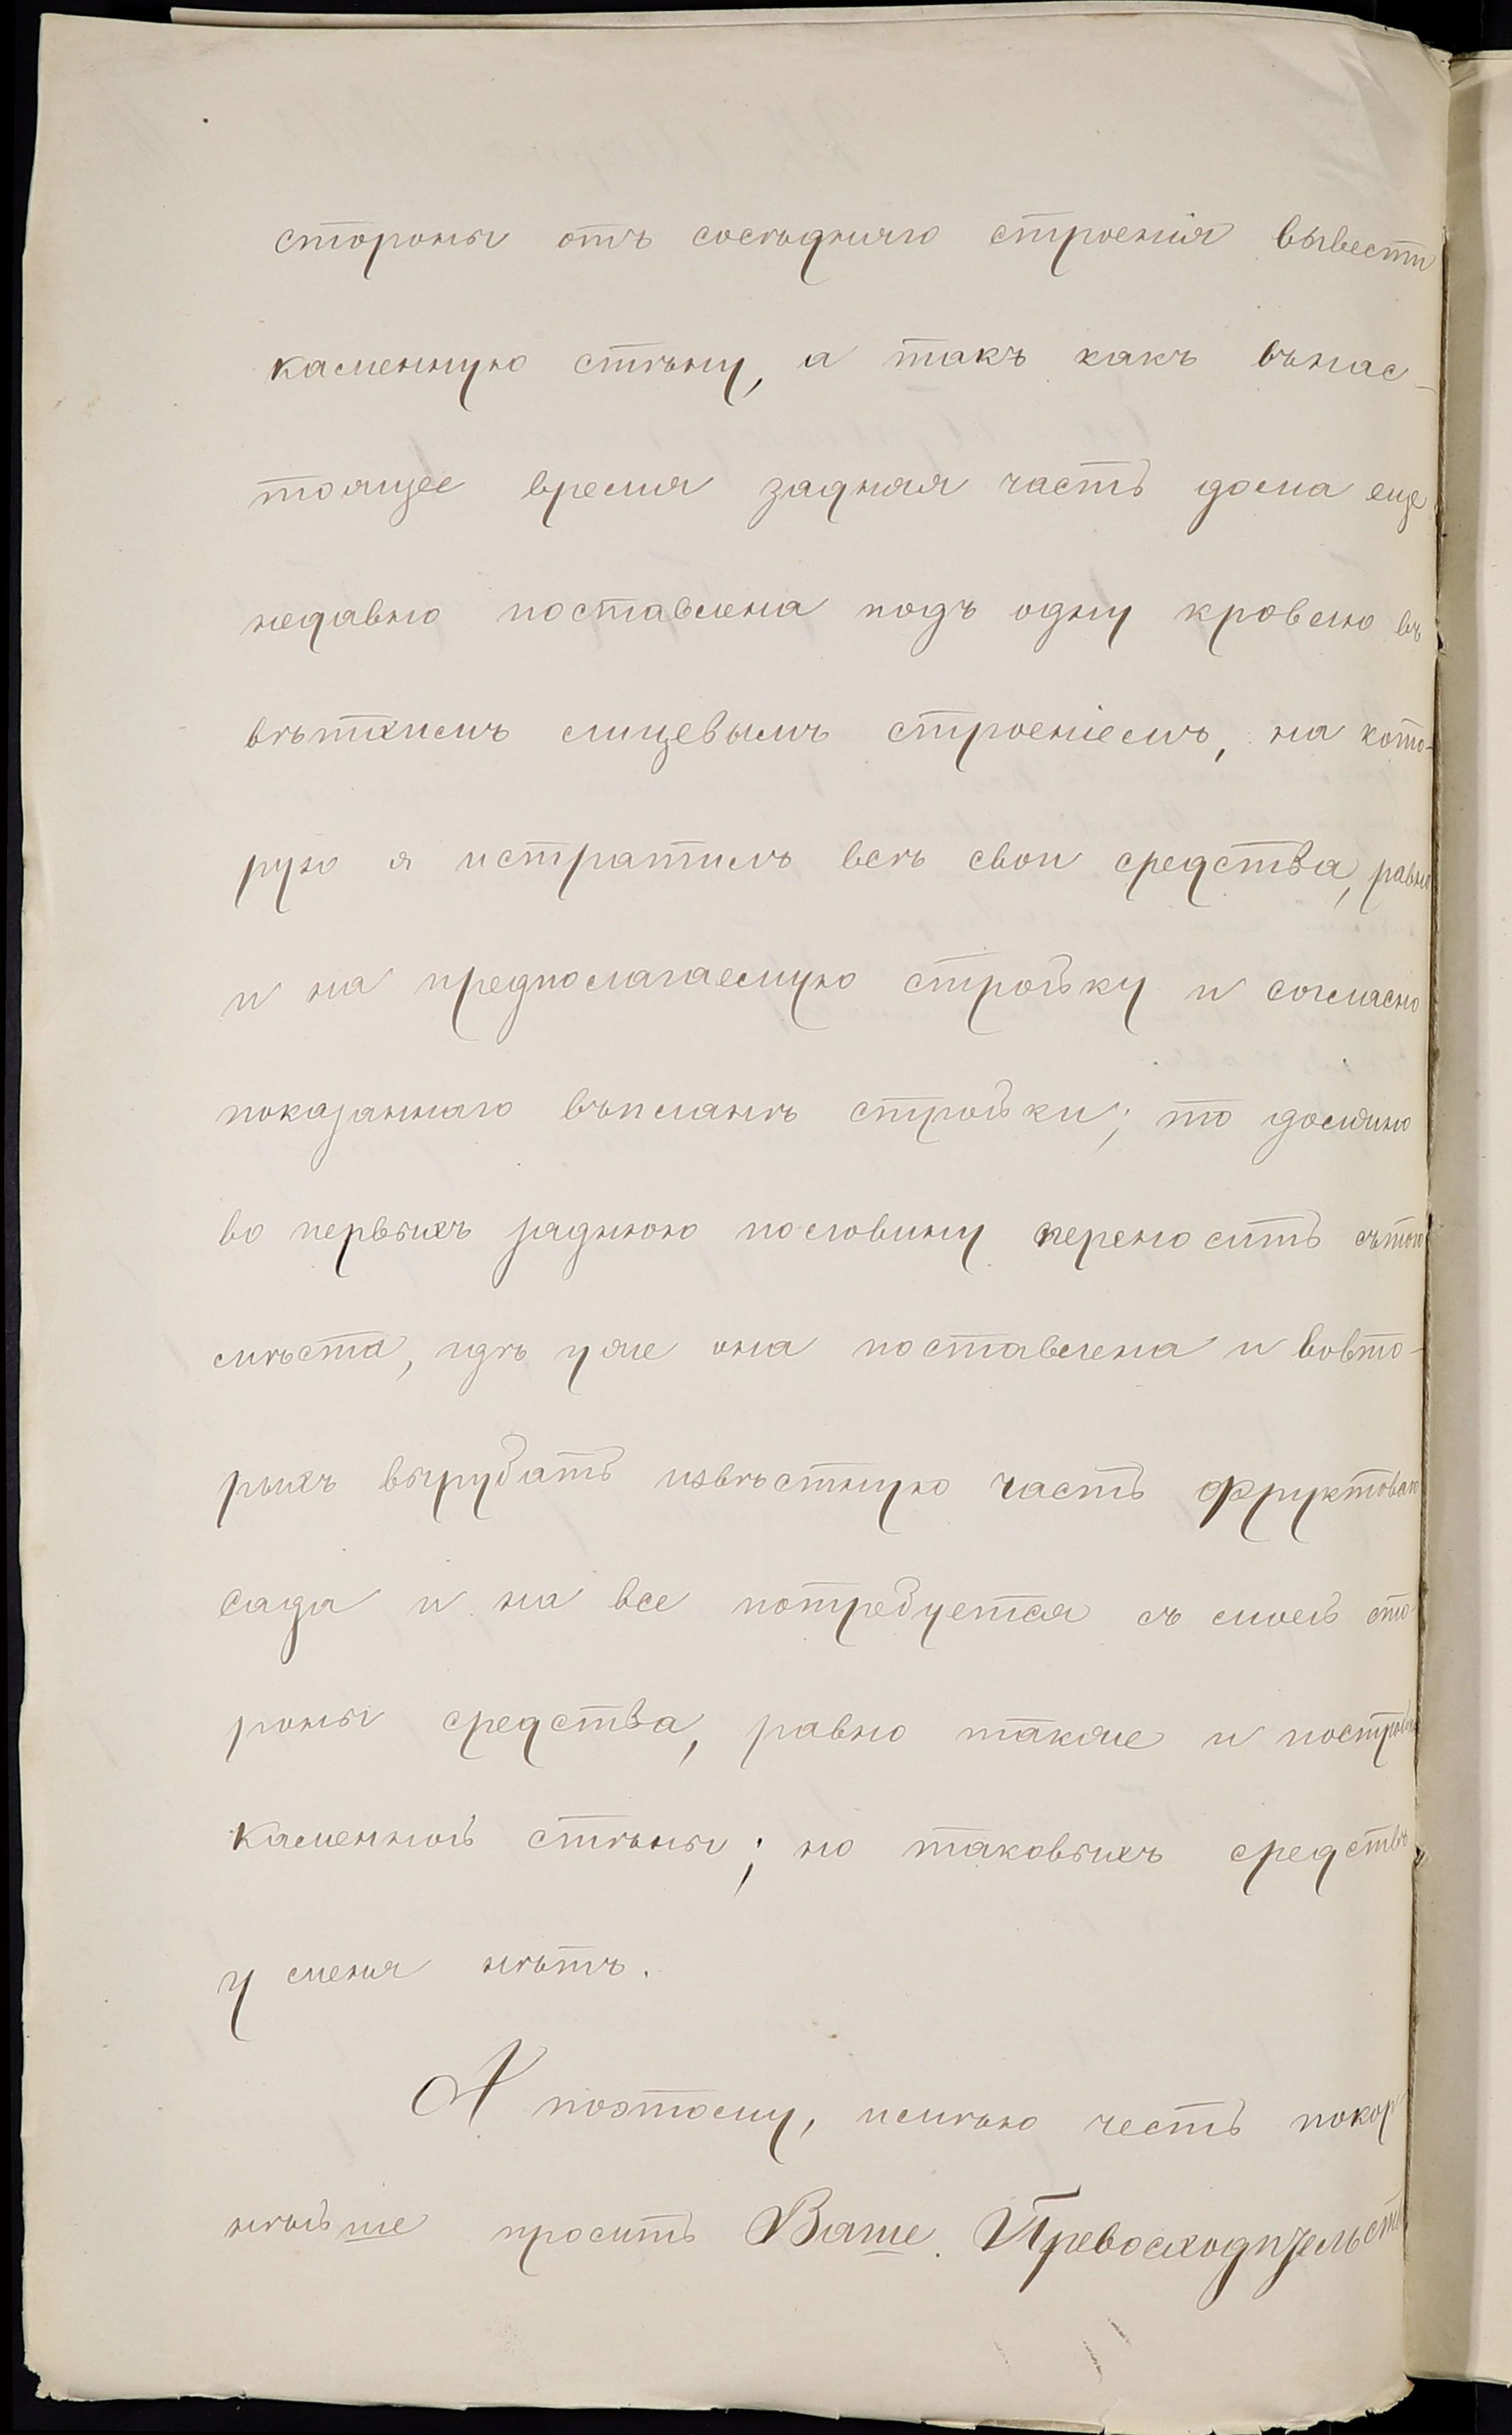 стороны отъ сосѣдняго строенія вывести
каменную стѣну, а такъ какъ внас-
тоящее время задняя часть дома еще
недавно поставлена подъ одну кровлю въ
вѣтхимъ лицевымъ строеніемъ, на кото-
рую я истратилъ всѣ свои средства, равно
и на предполагаемую стройку и согласно
показаннаго въпланѣ стройки; то должно
во первыхъ заднюю половину переносить сътого
мѣста, гдѣ уже она поставлена и вовто-
рыхъ вырубать извѣстную часть фруктоваго
сада и на все потребуется съ моей сто
роны средства, равно также и
каменной стѣны; но таковыхъ средствъ
у меня нѣтъ.
А поэтому, имѣю честь покор
нѣйше просить Ваше Превосходительст